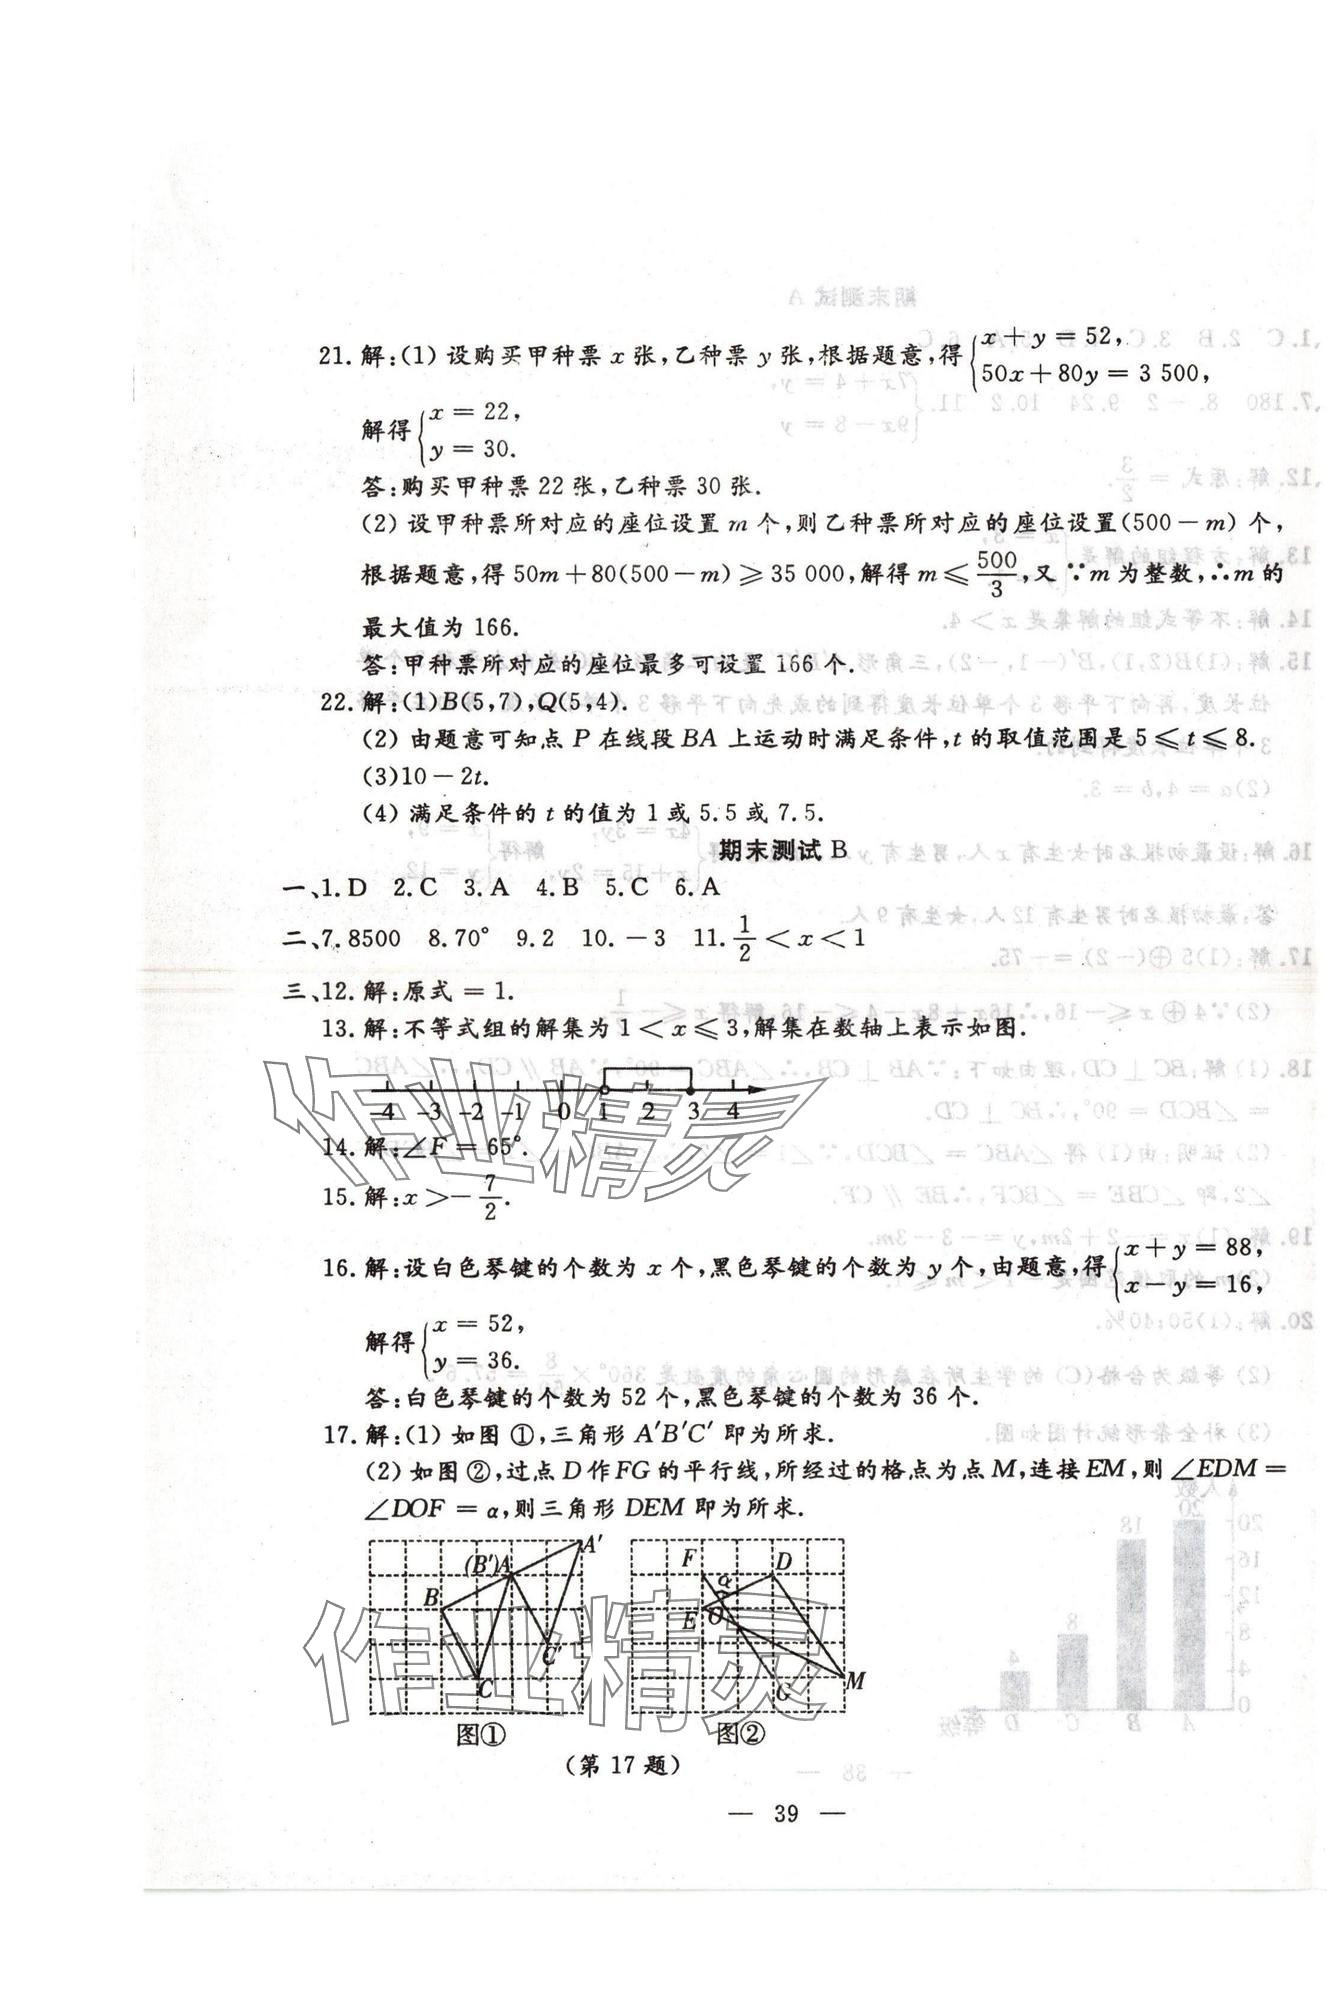 21. 解:(1) 设购买甲种票 x 张,乙种票 y 张,根据题意,得{x+y=52, 50x+80y=3 500,
解得{x=22, y=30.
答:购买甲种票 22 张,乙种票 30 张.
(2) 设甲种票所对应的座位设置 m 个,则乙种票所对应的座位设置(500-m) 个,
根据题意,得 50m+80(500-m)⩾35 000,解得 m⩽500/3,又∵m 为整数,∴m 的
最大值为 166.
答:甲种票所对应的座位最多可设置 166 个.
22. 解:(1)B(5,7),Q(5,4).
(2) 由题意可知点 P 在线段 BA 上运动时满足条件,t 的取值范围是 5⩽t⩽8.
(3)10-2t.
(4) 满足条件的 t 的值为 1 或 5.5 或 7.5.
期末测试 B
一、1. D 2. C 3. A 4. B 5. C 6. A
二、7. 8500 8. 70° 9. 2 10. -3 11. 1/2<x<1
三、12. 解:原式=1.
13. 解:不等式组的解集为 1<x⩽3,解集在数轴上表示如图.
-4 -3 -2 -1 0 1 2 3 4
14. 解:∠F=65°.
15. 解:x>-7/2.
16. 解:设白色琴键的个数为 x 个,黑色琴键的个数为 y 个,由题意,得{x+y=88, x-y=16,
解得{x=52, y=36.
答:白色琴键的个数为 52 个,黑色琴键的个数为 36 个.
17. 解:(1) 如图 ①,三角形 A′B′C′ 即为所求.
(2) 如图 ②,过点 D 作 FG 的平行线,所经过的格点为点 M,连接 EM,则 ∠EDM=
∠DOF=α,则三角形 DEM 即为所求.
A′ (B′)A B C′ C
F D α E O M G
图① 图②
(第 17 题)
— 39 —
作业精灵
作业精灵